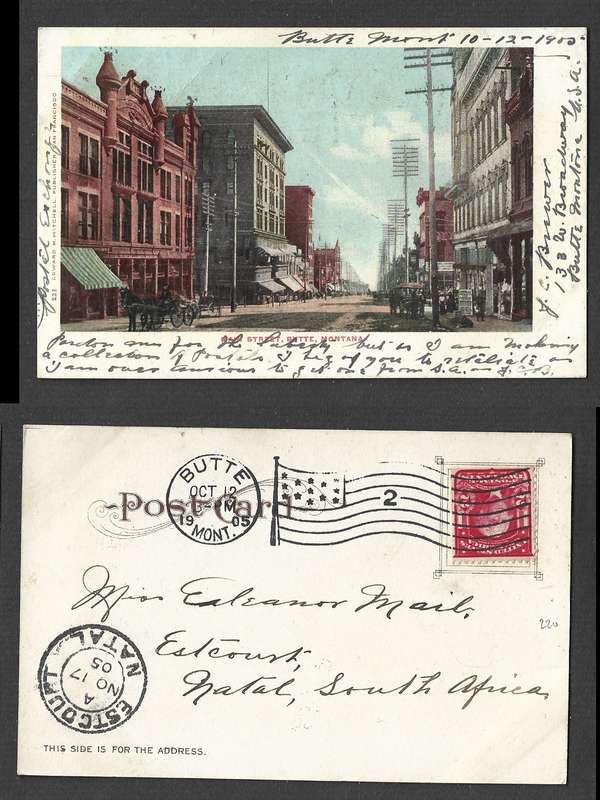 Butte Mont 10-12-1905
Postal Exchange
221 EDWARD H. MITCHELL, PUBLISHER, SAN FRANCISCO
MAIN STREET, BUTTE, MONTANA.
J. C. Brewer
133 W. Broadway
Butte Montana U.S.A.
Pardon me for the liberty but as I am making
a collection of Postals. I beg of you to retaliate as
I am over anxious to get one from S.A. - J.C.B.
Post Card
BUTTE
OCT 12
M
19 05
MONT.
2
Miss Ealeanor Mail,
Estcourt,
Natal, South Africa
220
ESTCOURT NATAL
A
NO 17
05
THIS SIDE IS FOR THE ADDRESS.